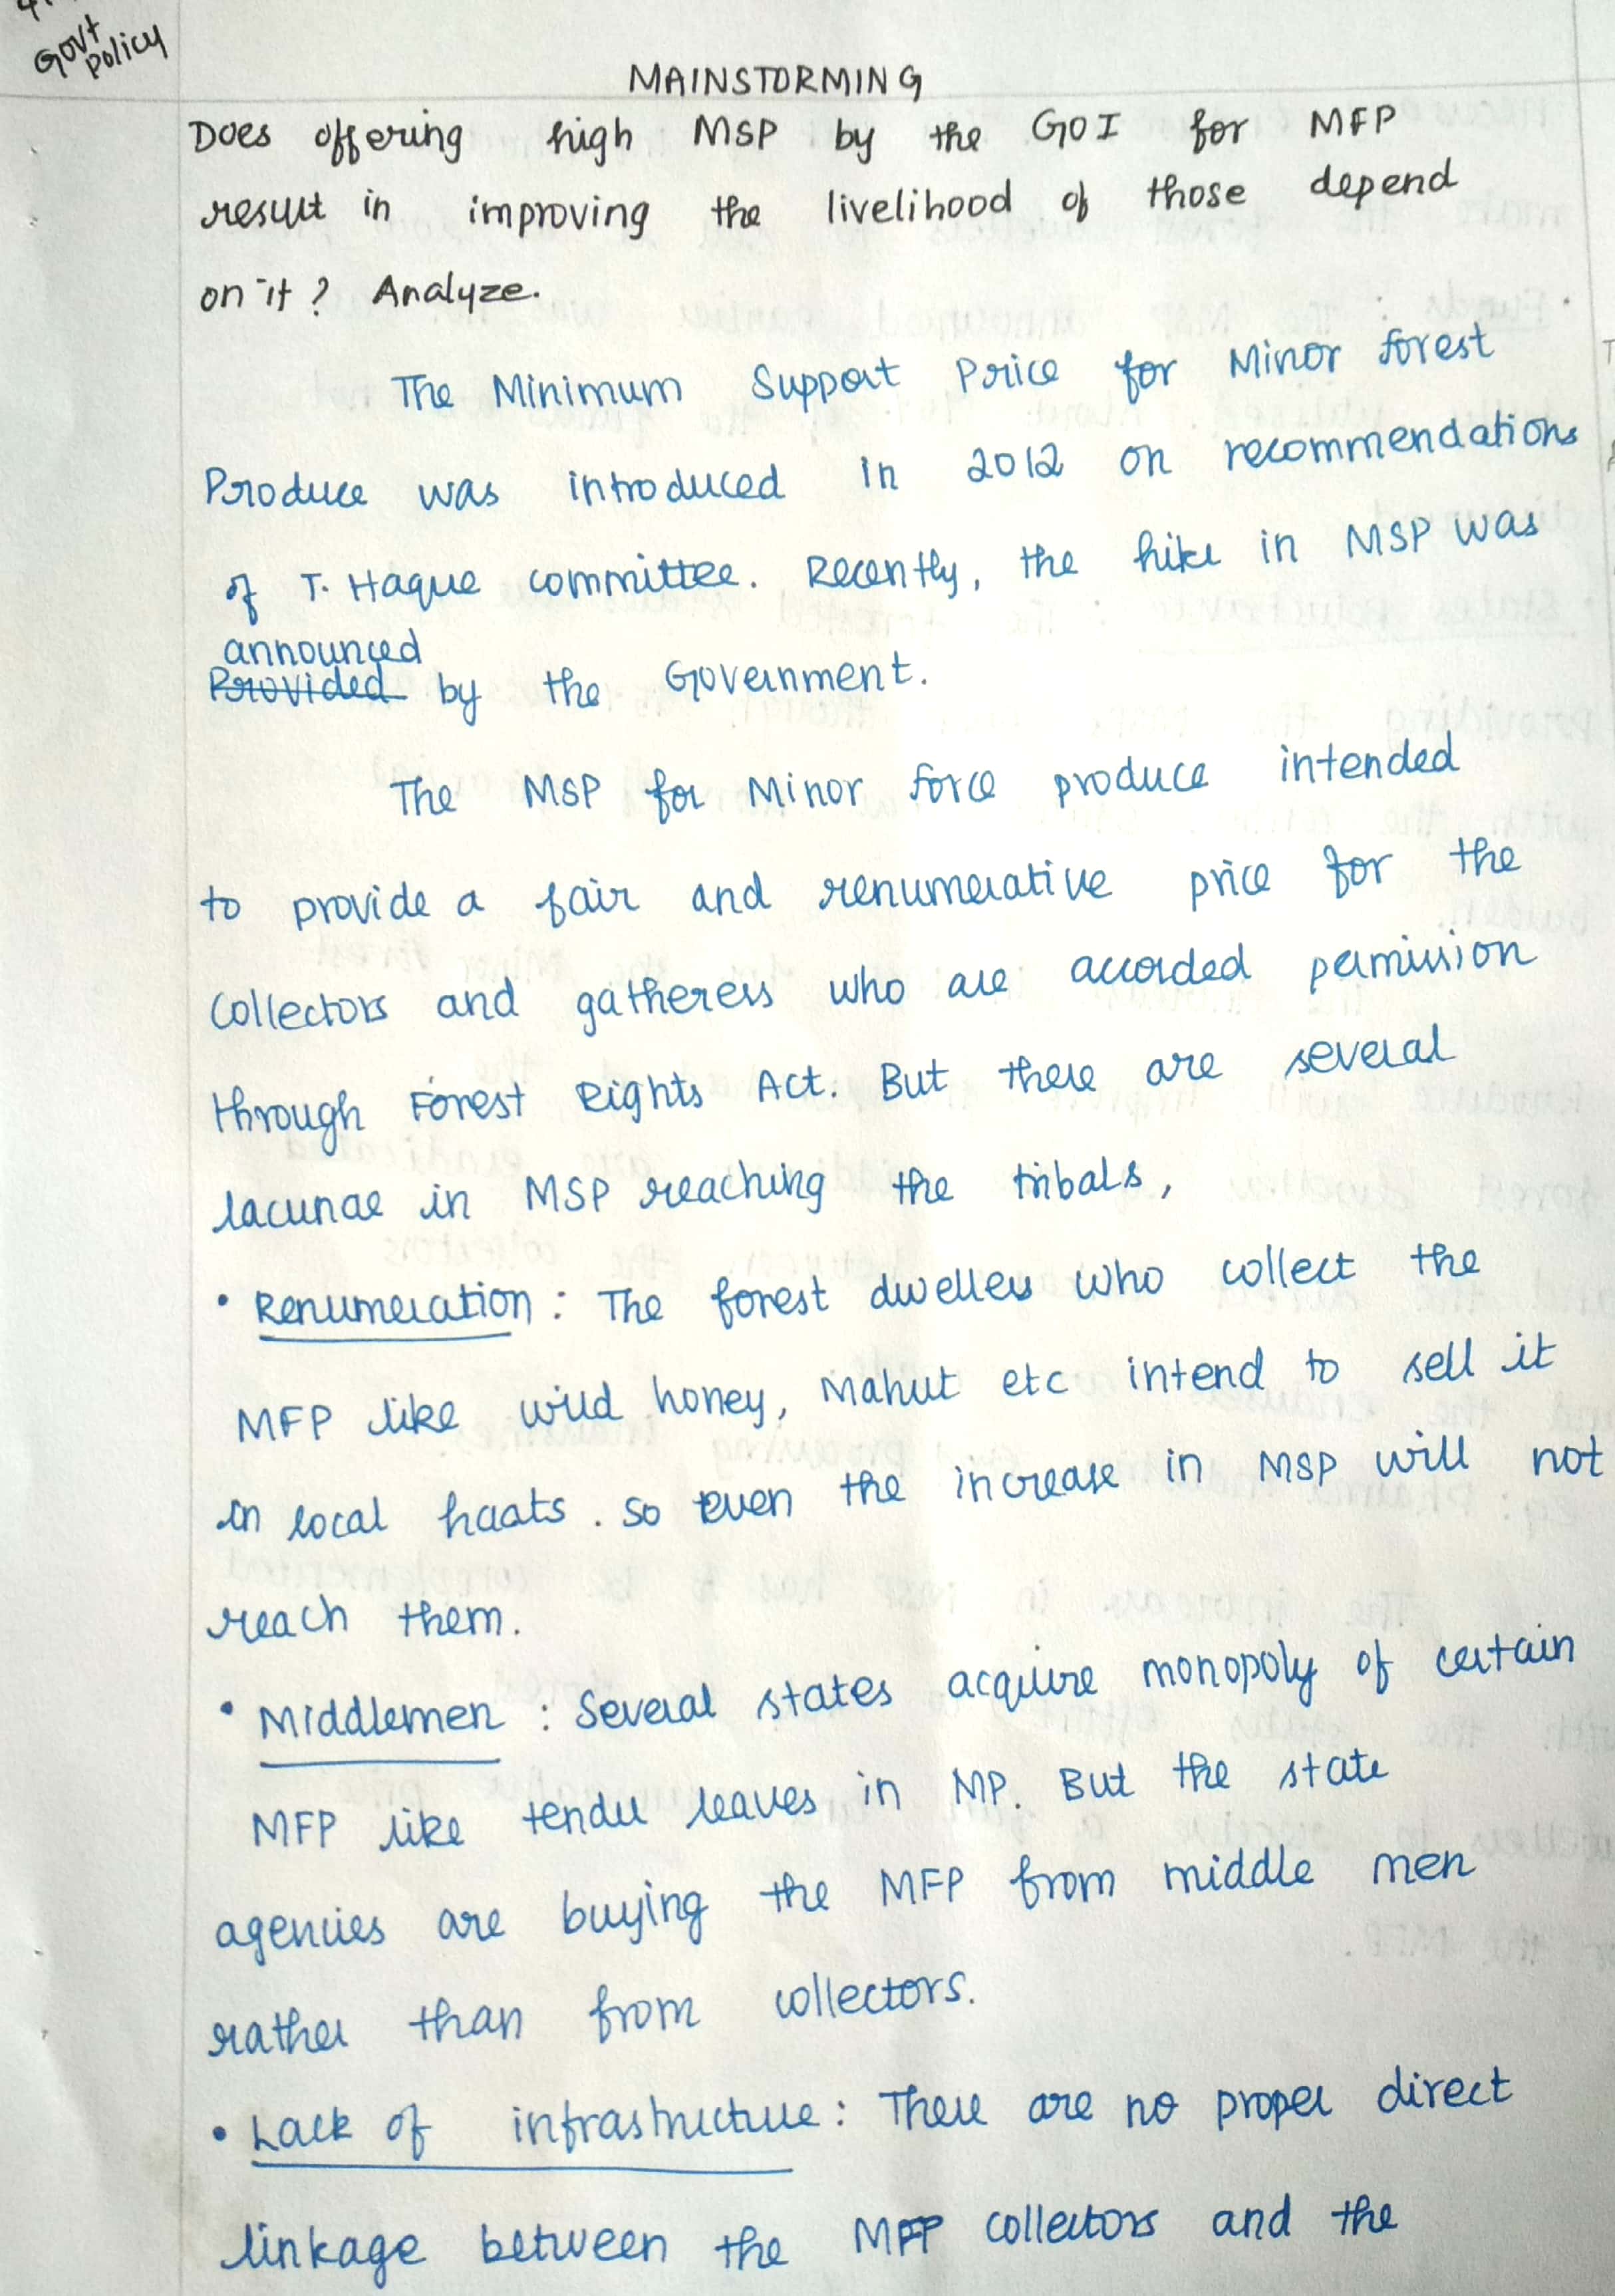 Govt
policy
MAINSTORMING
Does offering high MSP by the GOI for MFP
result in improving the livelihood of those depend
on it? Analyze.
The Minimum Support Price for Minor forest
Produce was introduced in 2012 on recommendations
of T. Haque committee. Recently, the hike in MSP was
announced
Provided by the Government.
The MSP for Minor force produce intended
to provide a fair and renumerative price for the
collectors and gatherers who are accorded permission
through Forest Rights Act. But there are several
lacunae in MSP reaching the tribals,
• Renumeration : The forest dwellers who collect the
MFP like wild honey, Mahut etc intend to sell it
in local haats. So even the increase in MSP will not
reach them.
• Middlemen : Several states acquire monopoly of certain
MFP like tendu leaves in MP. But the state
agencies are buying the MFP from middle men
rather than from collectors.
• Lack of infrastructure : There are no proper direct
linkage between the MFP collectors and the